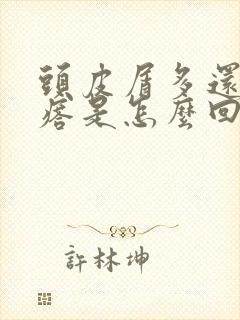 頭皮屑多還
痞是怎麼回
許林坤